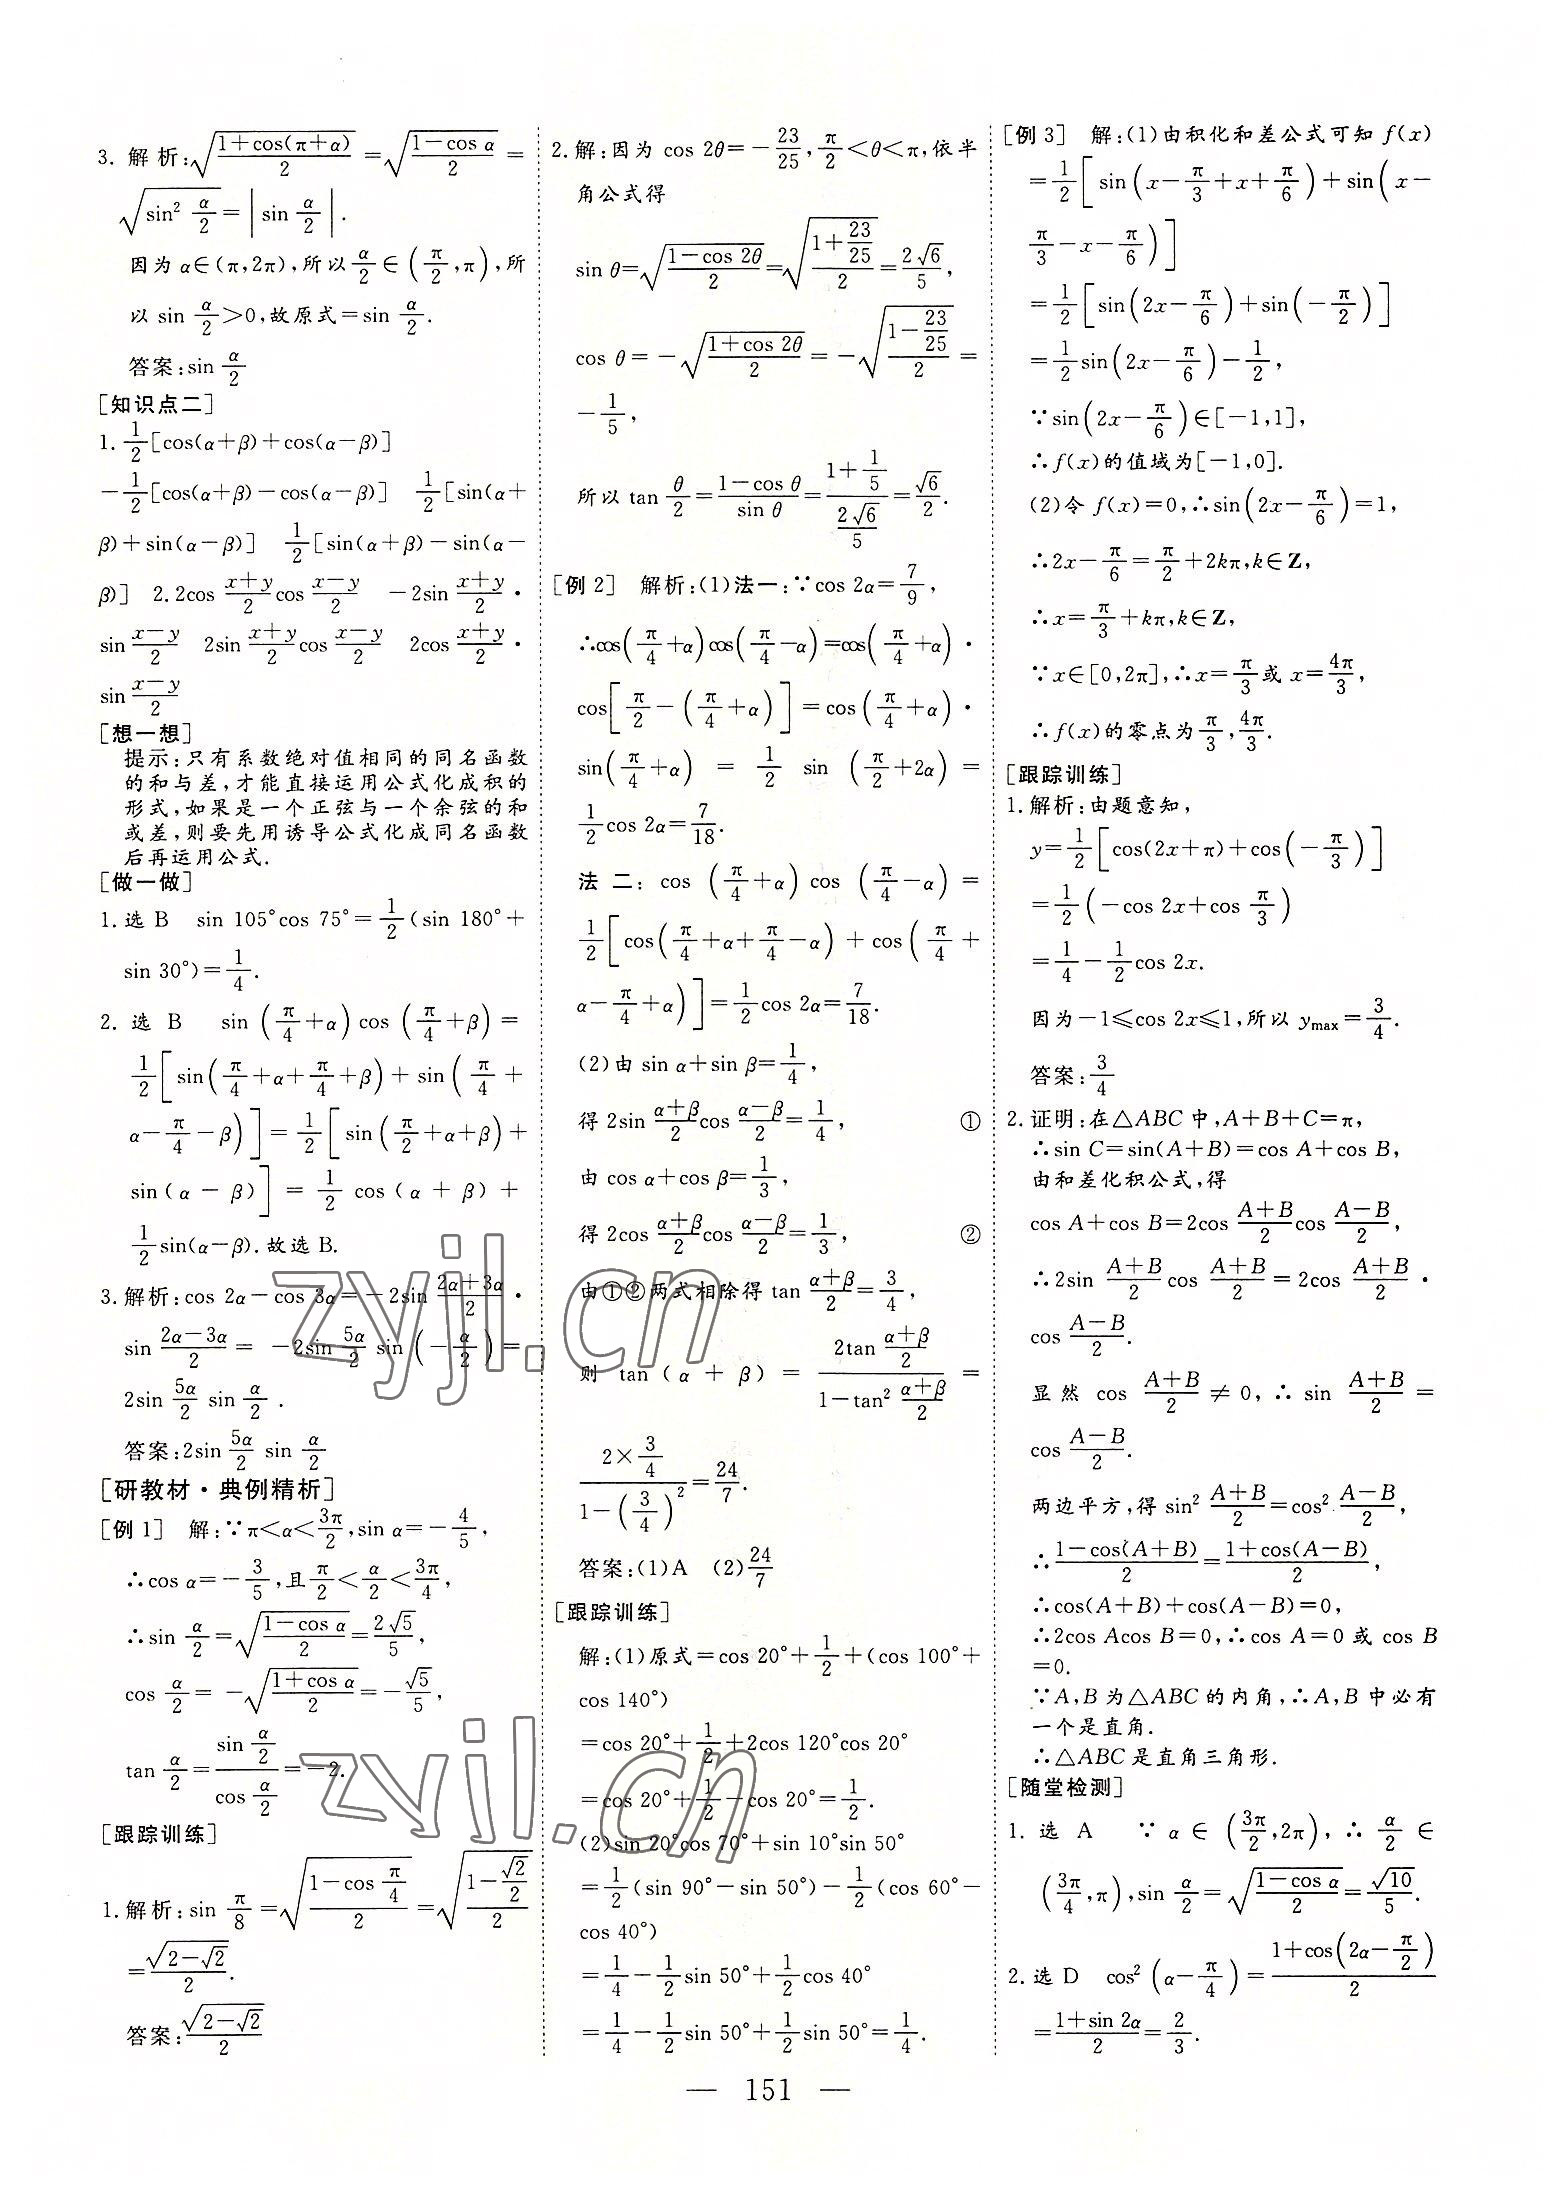 3. 解析:√((1+cos(π+α))/2)=√((1-cos α)/2)=
√(sin² α/2)=|sin α/2|.
因为 α∈(π,2π),所以 α/2∈(π/2,π),所
以 sin α/2>0,故原式=sin α/2.
答案:sin α/2
[知识点二]
1. 1/2[cos(α+β)+cos(α-β)]
-1/2[cos(α+β)-cos(α-β)] 1/2[sin(α+
β)+sin(α-β)] 1/2[sin(α+β)-sin(α-
β)] 2. 2cos (x+y)/2 cos (x-y)/2 -2sin (x+y)/2 ·
sin (x-y)/2 2sin (x+y)/2 cos (x-y)/2 2cos (x+y)/2 ·
sin (x-y)/2
[想一想]
提示:只有系数绝对值相同的同名函数
的和与差,才能直接运用公式化成积的
形式,如果是一个正弦与一个余弦的和
或差,则要先用诱导公式化成同名函数
后再运用公式.
[做一做]
1. 选 B sin 105°cos 75°=1/2(sin 180°+
sin 30°)=1/4.
2. 选 B sin(π/4+α)cos(π/4+β)=
1/2[sin(π/4+α+π/4+β)+sin(π/4+
α-π/4-β)]=1/2[sin(π/2+α+β)+
sin(α-β)]=1/2 cos(α+β)+
1/2 sin(α-β). 故选 B.
3. 解析:cos 2α-cos 3α=-2sin (2α+3α)/2 ·
sin (2α-3α)/2=-2sin 5α/2 sin(-α/2)=
2sin 5α/2 sin α/2.
答案:2sin 5α/2 sin α/2
[研教材·典例精析]
[例 1] 解:∵π<α<3π/2,sin α=-4/5,
∴cos α=-3/5,且 π/2<α/2<3π/4,
∴sin α/2=√((1-cos α)/2)=2√5/5,
cos α/2=-√((1+cos α)/2)=-√5/5,
tan α/2=(sin α/2)/(cos α/2)=-2.
[跟踪训练]
1. 解析:sin π/8=√((1-cos π/4)/2)=√((1-√2/2)/2)
=√(2-√2)/2.
答案:√(2-√2)/2
2. 解:因为 cos 2θ=-23/25,π/2<θ<π,依半
角公式得
sin θ=√((1-cos 2θ)/2)=√((1+23/25)/2)=2√6/5,
cos θ=-√((1+cos 2θ)/2)=-√((1-23/25)/2)=
-1/5,
所以 tan θ/2=(1-cos θ)/sin θ=(1+1/5)/(2√6/5)=√6/2.
[例 2] 解析:(1)法一:∵cos 2α=7/9,
∴cos(π/4+α)cos(π/4-α)=cos(π/4+α)·
cos[π/2-(π/4+α)]=cos(π/4+α)·
sin(π/4+α)=1/2 sin(π/2+2α)=
1/2 cos 2α=7/18.
法二:cos(π/4+α)cos(π/4-α)=
1/2[cos(π/4+α+π/4-α)+cos(π/4+
α-π/4+α)]=1/2 cos 2α=7/18.
(2)由 sin α+sin β=1/4,
得 2sin (α+β)/2 cos (α-β)/2=1/4, ①
由 cos α+cos β=1/3,
得 2cos (α+β)/2 cos (α-β)/2=1/3, ②
由①②两式相除得 tan (α+β)/2=3/4,
则 tan(α+β)=(2tan (α+β)/2)/(1-tan² (α+β)/2)=
(2×3/4)/(1-(3/4)²)=24/7.
答案:(1)A (2)24/7
[跟踪训练]
解:(1)原式=cos 20°+1/2+(cos 100°+
cos 140°)
=cos 20°+1/2+2cos 120°cos 20°
=cos 20°+1/2-cos 20°=1/2.
(2)sin 20°cos 70°+sin 10°sin 50°
=1/2(sin 90°-sin 50°)-1/2(cos 60°-
cos 40°)
=1/4-1/2 sin 50°+1/2 cos 40°
=1/4-1/2 sin 50°+1/2 sin 50°=1/4.
[例 3] 解:(1)由积化和差公式可知 f(x)
=1/2[sin(x-π/3+x+π/6)+sin(x-
π/3-x-π/6)]
=1/2[sin(2x-π/6)+sin(-π/2)]
=1/2 sin(2x-π/6)-1/2,
∵sin(2x-π/6)∈[-1,1],
∴f(x)的值域为[-1,0].
(2)令 f(x)=0,∴sin(2x-π/6)=1,
∴2x-π/6=π/2+2kπ,k∈Z,
∴x=π/3+kπ,k∈Z,
∵x∈[0,2π],∴x=π/3 或 x=4π/3,
∴f(x)的零点为 π/3,4π/3.
[跟踪训练]
1. 解析:由题意知,
y=1/2[cos(2x+π)+cos(-π/3)]
=1/2(-cos 2x+cos π/3)
=1/4-1/2 cos 2x.
因为-1≤cos 2x≤1,所以 ymax=3/4.
答案:3/4
2. 证明:在△ABC 中,A+B+C=π,
∴sin C=sin(A+B)=cos A+cos B,
由和差化积公式,得
cos A+cos B=2cos (A+B)/2 cos (A-B)/2,
∴2sin (A+B)/2 cos (A+B)/2=2cos (A+B)/2 ·
cos (A-B)/2.
显然 cos (A+B)/2≠0,∴sin (A+B)/2=
cos (A-B)/2.
两边平方,得 sin² (A+B)/2=cos² (A-B)/2,
∴(1-cos(A+B))/2=(1+cos(A-B))/2,
∴cos(A+B)+cos(A-B)=0,
∴2cos Acos B=0,∴cos A=0 或 cos B
=0.
∵A,B 为△ABC 的内角,∴A,B 中必有
一个是直角.
∴△ABC 是直角三角形.
[随堂检测]
1. 选 A ∵α∈(3π/2,2π),∴α/2∈
(3π/4,π),sin α/2=√((1-cos α)/2)=√10/5.
2. 选 D cos²(α-π/4)=(1+cos(2α-π/2))/2
=(1+sin 2α)/2=2/3.
— 151 —
zyjl.cn
zyjl.cn